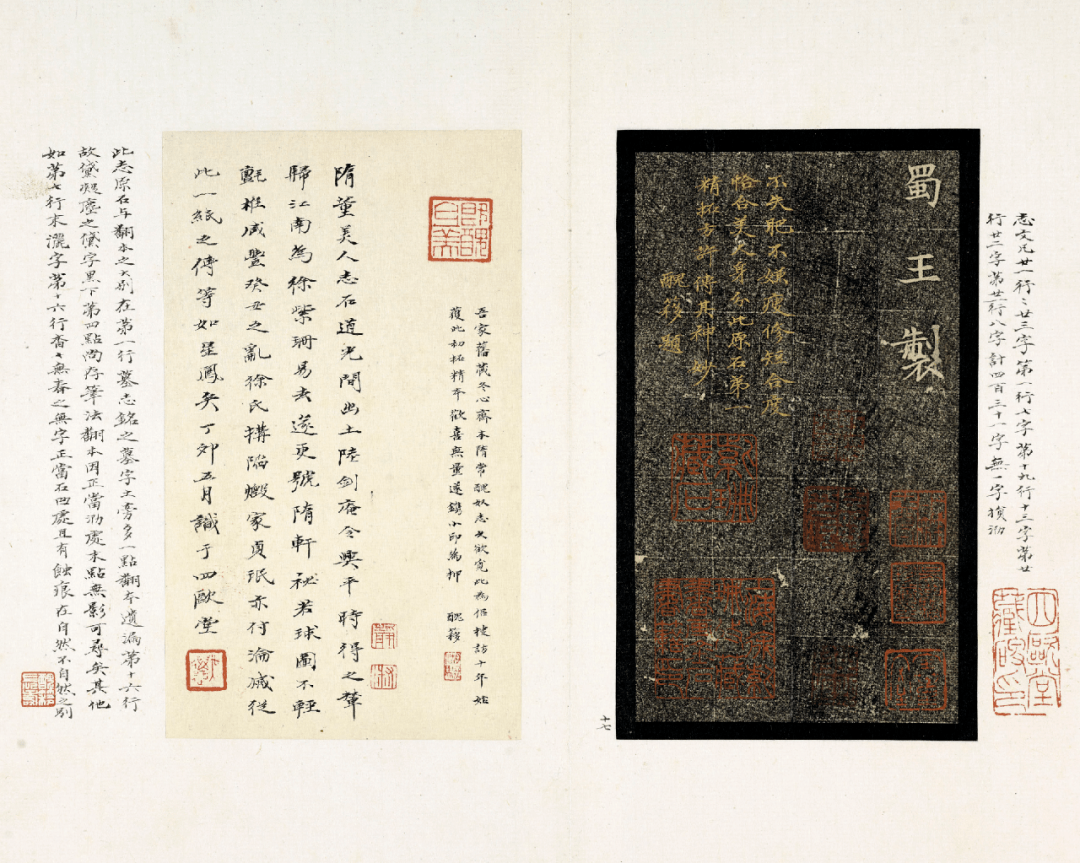 志文凡廿一行〻廿三字第一行七字第十九行十三字第廿
行廿二字第廿一行八字計四百三十一字無一字損泐
蜀王製
不失肥不嫌瘦修短合度
恰合美人身分此原石第一
精拓方許傳其神妙
醜簃題
十七
吾家舊藏冬心齋本隋常醜奴志久欲覓此為侶棲訪十年始
獲此初拓精本歡喜無量遂鐫小印為押 醜簃
隋董美人志石道光間出土陸劍庵令興平時得之輦
歸江南為徐紫珊易去遂更號隋軒祕若球圖不輕
氈椎咸豐癸丑之亂徐氏搆陷燬家貞珉亦付淪滅從
此一紙之傳等如星鳳矣丁卯五月識于四歐堂
此志原石与翻本之大別在第一行墓志銘之墓字土旁多一點翻本遺漏第十六行
故黛凝塵之黛字黑下第四點尚存筆法翻本因正當泐處末點無影可尋矣其他
如第七行末灑字第十六行香〻無春之無字正當石凹處且有蝕痕在自然不自然之別